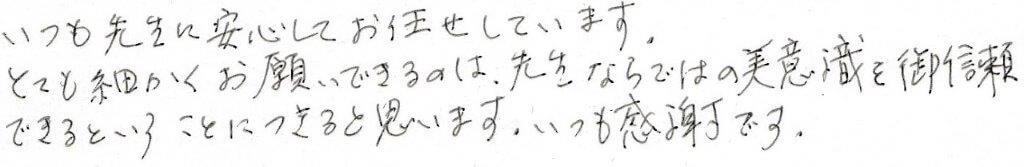 いつも先生に安心してお任せしています。
とても細かくお願いできるのは、先生ならではの美意識を御信頼
できるということにつきると思います。いつも感謝です。